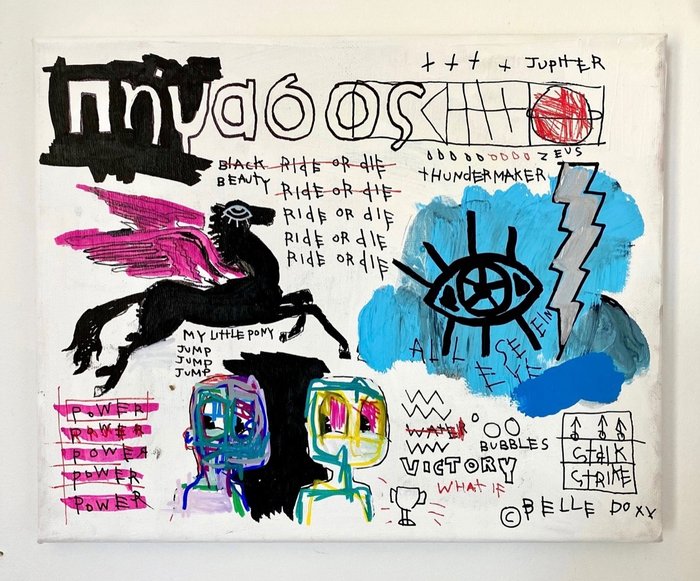 πήγασος
JUPITER
ZEUS
THUNDERMAKER
BLACK
BEAUTY
RIDE OR DIE
RIDE OR DIE
RIDE OR DIE
RIDE OR DIE
RIDE OR DIE
ALL SEEIN
EYE
MY LITTLE PONY
JUMP
JUMP
JUMP
POWER
POWER
POWER
POWER
POWER
WATER
BUBBLES
VICTORY
WHAT IF
STRIK
STRIKE
© BELLE DOXX